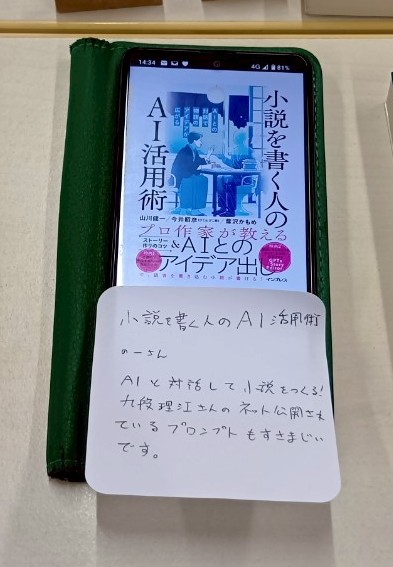 14:34
4G 81%
小説を書く人の
AI活用術
AIとの
対話で
山川健一／今井昭彦
葦沢かもめ
プロ作家が教える
ストーリー
作りのコツ
&AIとの
アイデア出し
インプレス
小説を書く人のAI活用術
のーさん
AIと対話して小説をつくる!
九段理江さんのネット公開され
ているプロンプトもすさまじい
です。